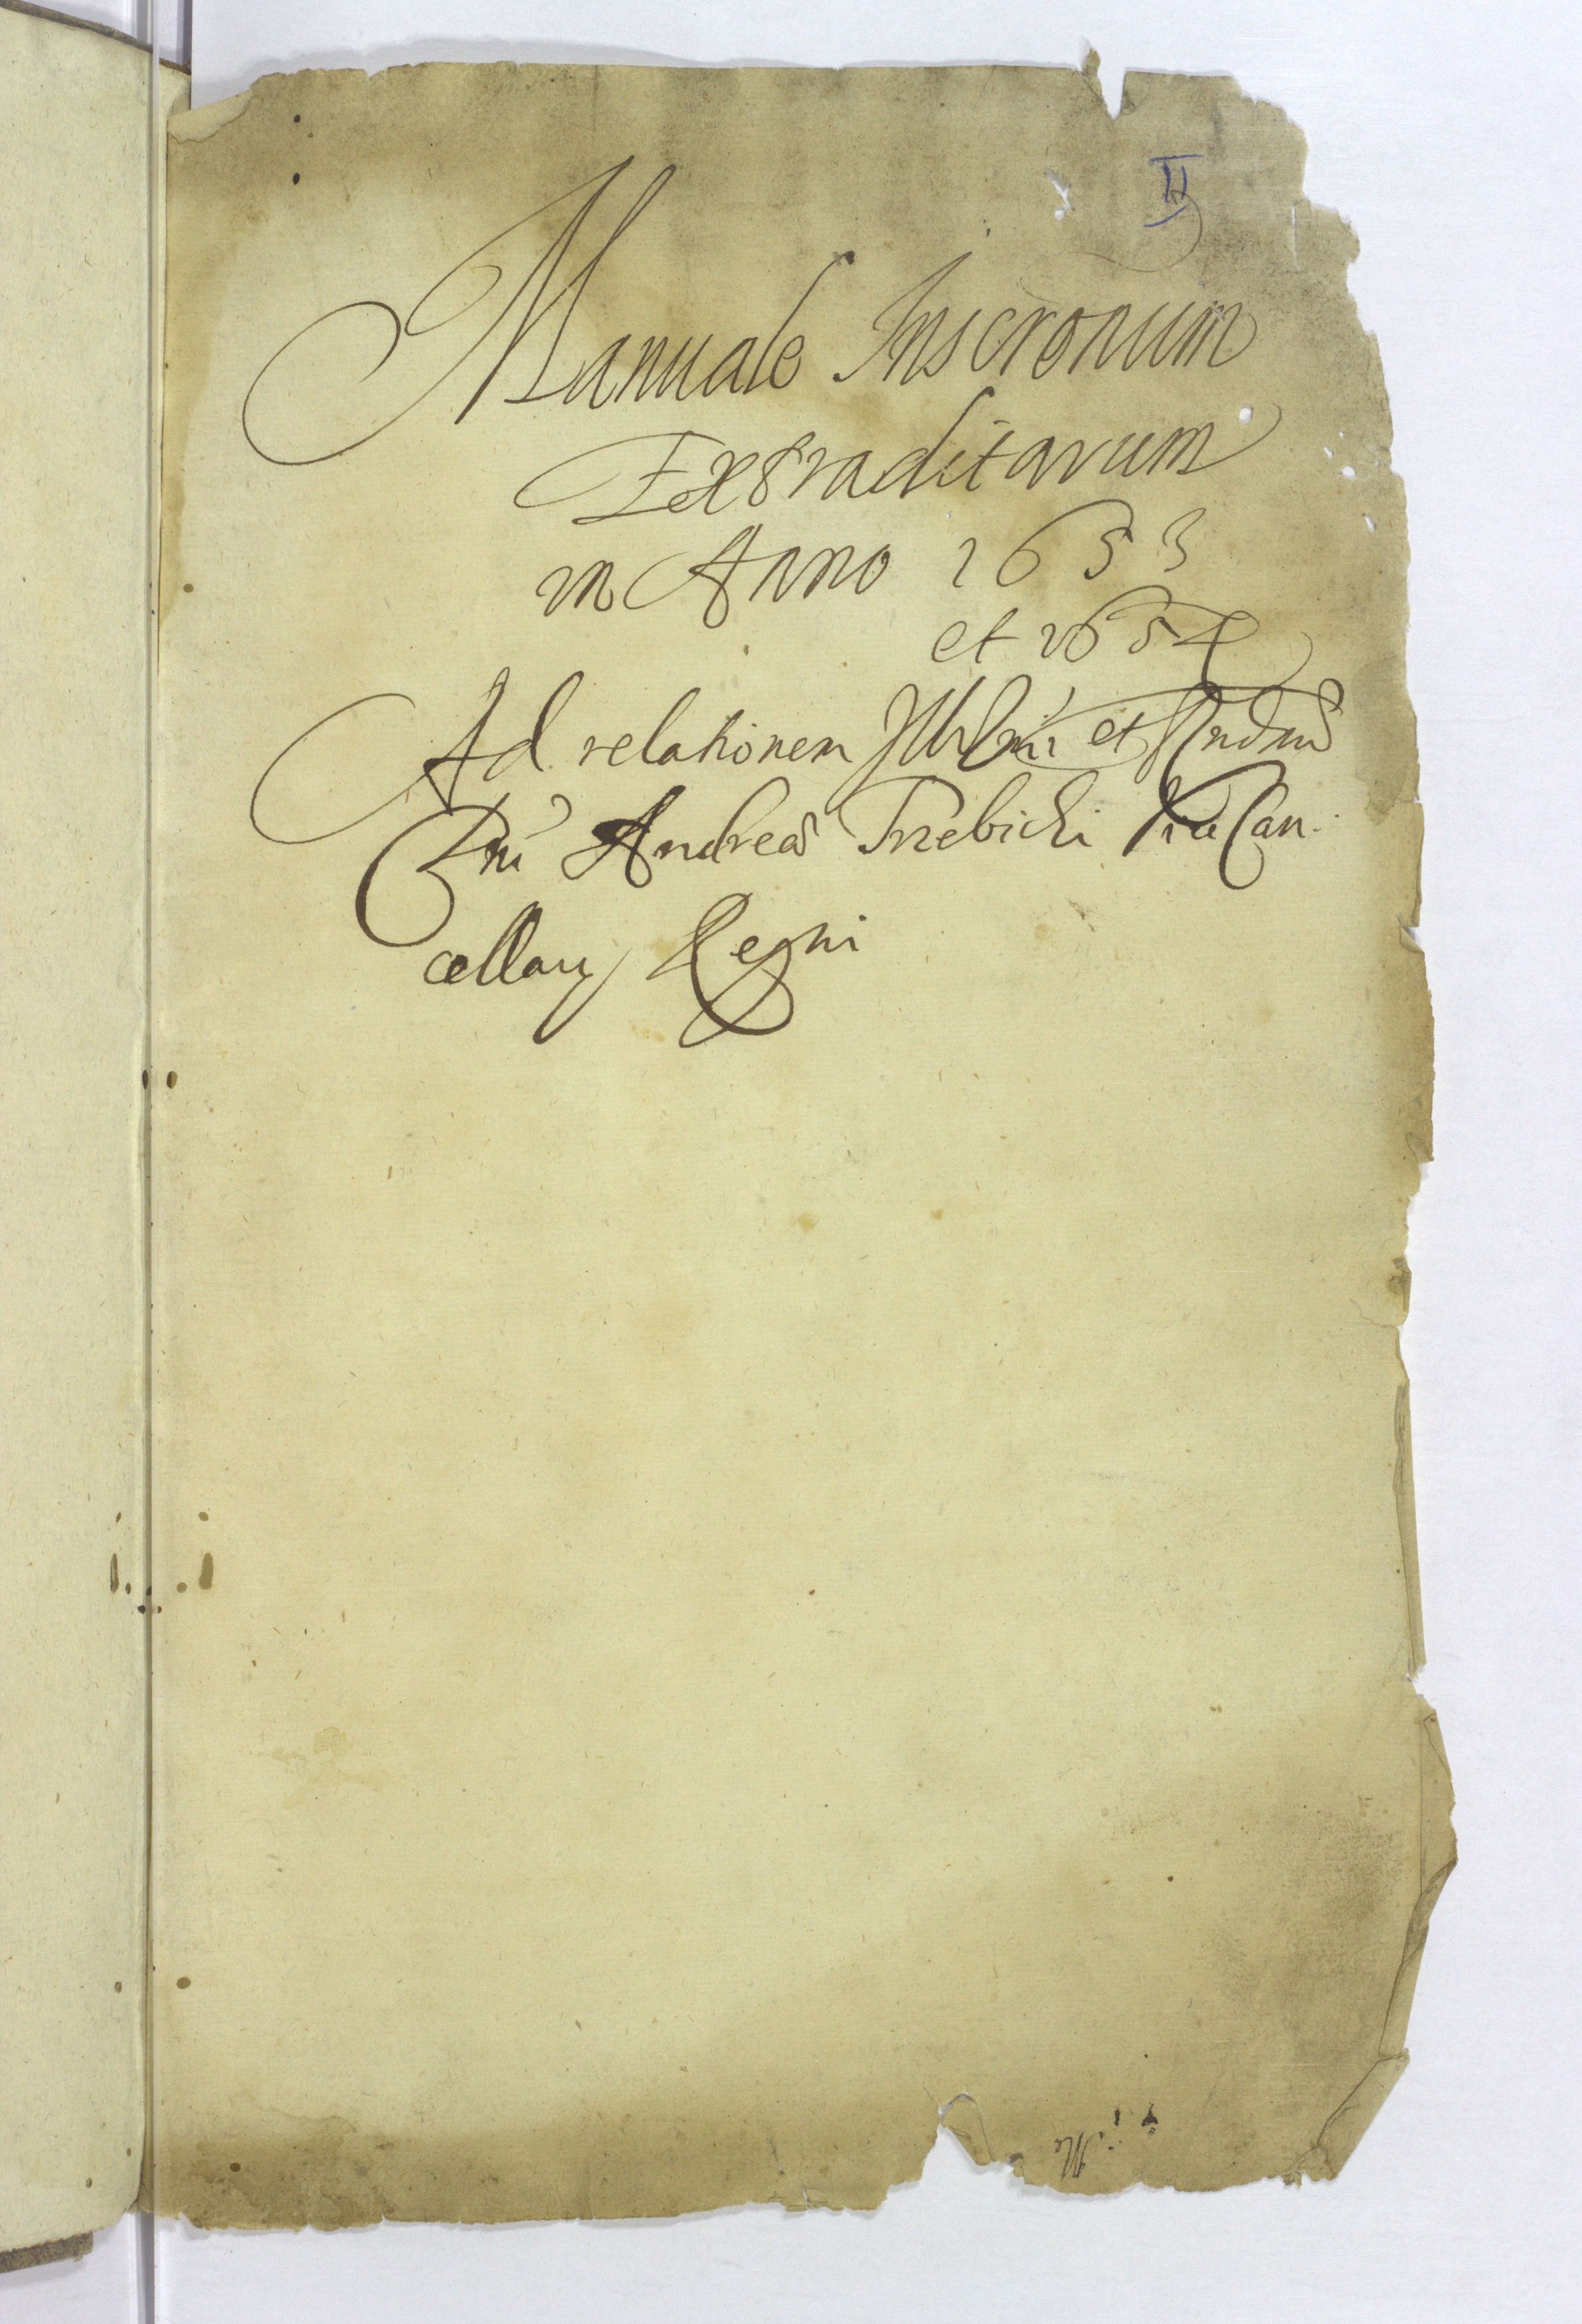 II
Manuale Inscronum
Extraditarum
in Anno 1653
et 1654
Ad relationem Illrmi et Rndmi
Dni Andreae Trzebicki Vice Can
cellarij Regni